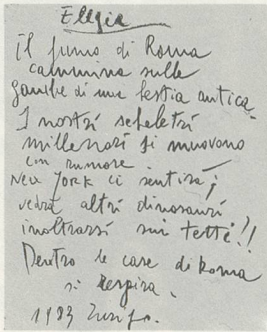 Elegia
Il fumo di Roma
cammina sulle
gambe di una bestia antica.
I nostri scheletri
millenari si muovono
con rumore.
New York ci sentirà;
vedrà altri dinosauri
inoltrarsi sui tetti!!
Dentro le case di Roma
si Respira.
1983